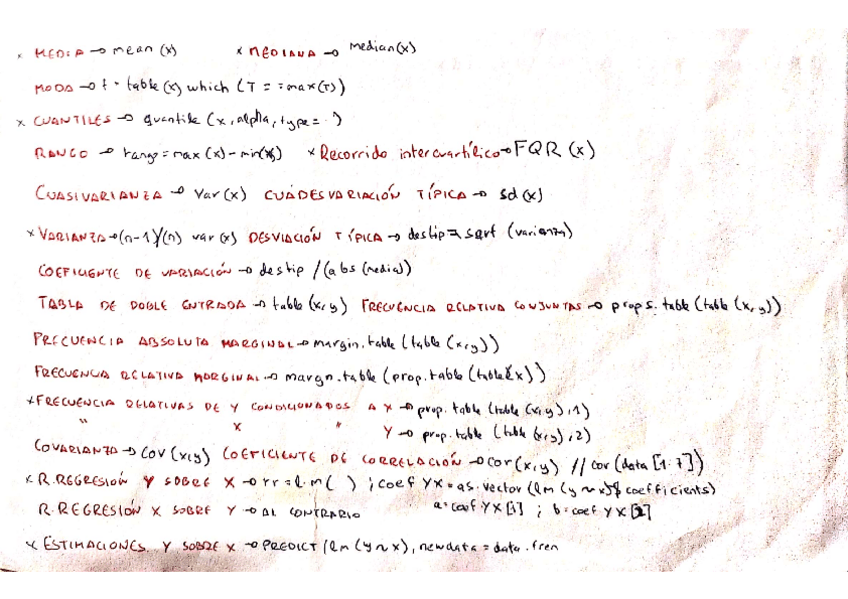 x MEDIA → mean (x) x MEDIANA → median(x)
MODA → t = table (x) which (T = = max(T))
x CUANTILES → quantile (x, alpha, type = )
RANGO → rango = max (x) - min(x) x Recorrido intercuartílico → FQR (x)
CUASIVARIANZA → Var (x) CUADESVARIACIÓN TÍPICA → sd (x)
x VARIANZA → (n-1)/(n) var (x) DESVIACIÓN TÍPICA → destip = sqrt (varianza)
COEFICIENTE DE VARIACIÓN → destip / (abs (media))
TABLA DE DOBLE ENTRADA → table (x, y) FRECUENCIA RELATIVA CONJUNTAS → props.table (table (x, y))
FRECUENCIA ABSOLUTA MARGINAL → margin.table (table (x, y))
FRECUENCIA RELATIVA MARGINAL → margn.table (prop.table (table (x))
x FRECUENCIA RELATIVAS DE Y CONDICIONADOS A X → prop.table (table (x, y), 1)
" X " Y → prop.table (table (x, y), 2)
COVARIANZA → cov (x, y) COEFICIENTE DE CORRELACIÓN → cor (x, y) // cor (data [1:7])
x R.REGRESIÓN Y SOBRE X → rr = l.m ( ) ; coef YX = as.vector (lm (y ~ x)$ coefficients)
R.REGRESIÓN X SOBRE Y → AL CONTRARIO a = coef YX [1] ; b = coef YX [2]
x ESTIMACIONES Y SOBRE X → PREDICT (lm (y ~ x), newdata = data.fren